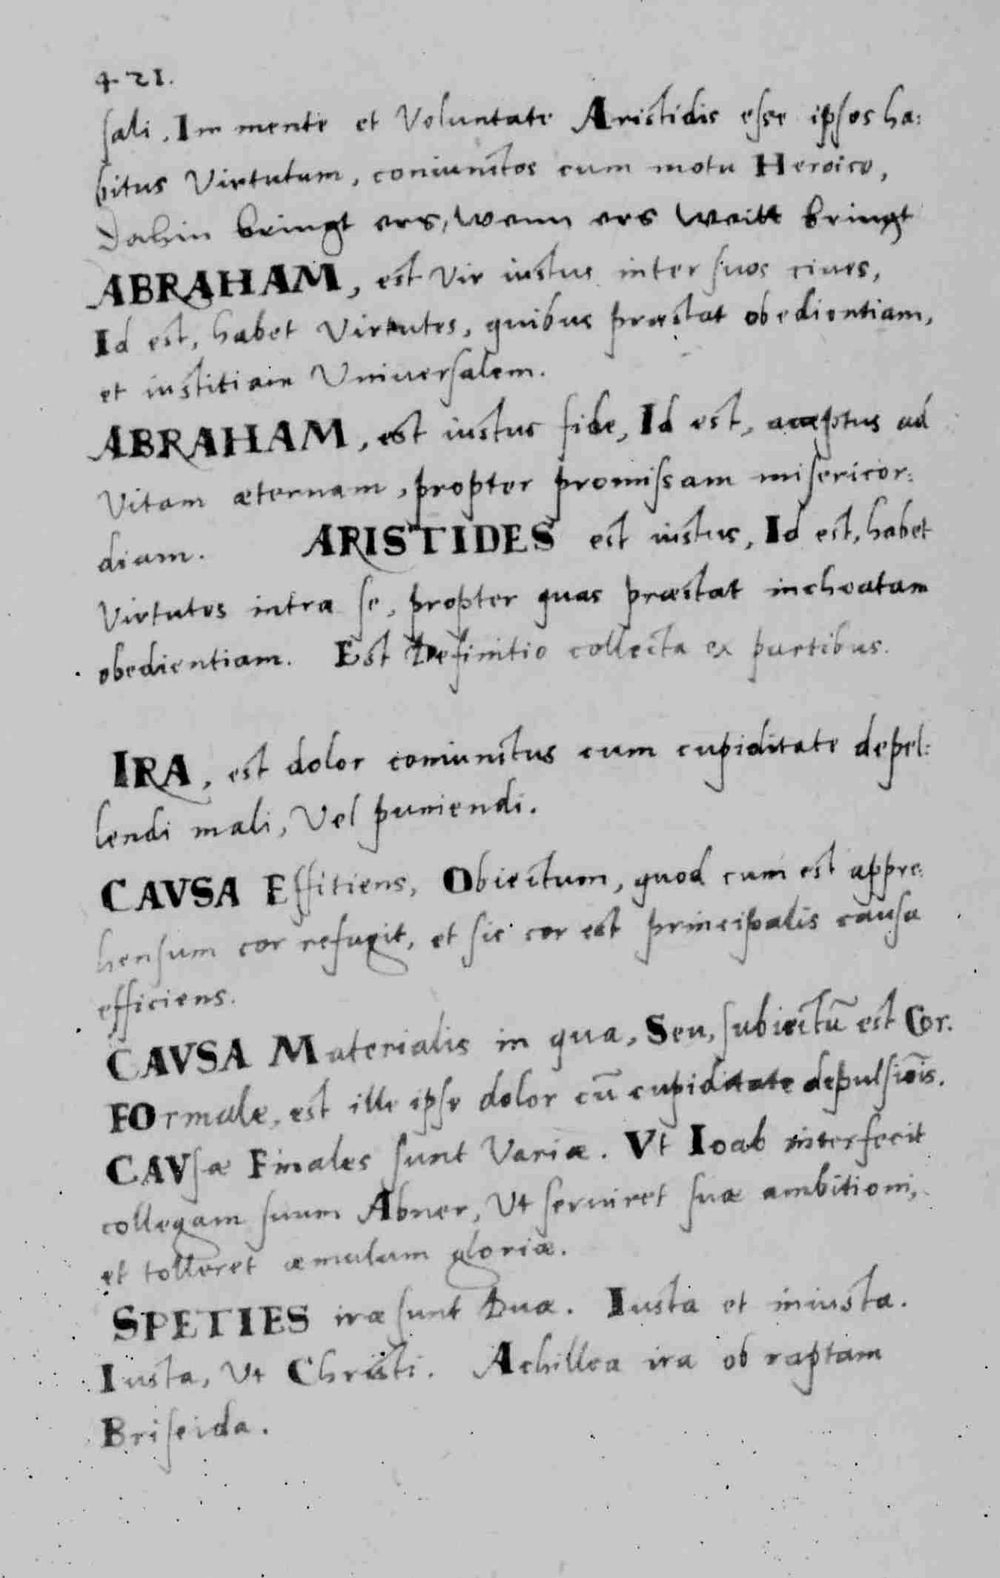 421.
sali. Im mente et Voluntate Aristidis esse ipsos ha:
bitus Virtutum, coniunctos cum motu Heroico,
Dahin bringt ers, wenn ers weitt bringt
ABRAHAM, est Vir iustus inter suos ciues,
Id est, habet Virtutes, quibus præstat obedientiam,
et iustitiam Vniuersalem.
ABRAHAM, est iustus fide, Id est, acceptus ad
Vitam æternam, propter promissam misericor:
diam. ARISTIDES est iustus, Id est, habet
Virtutes intra se, propter quas præstat inchoatam
obedientiam. Est Definitio collecta ex partibus.
IRA, est dolor coniunctus cum cupiditate depel:
lendi mali, Vel puniendi.
CAVSA Effitiens, Obiectum, quod cum est appre:
hensum cor refugit, et sic cor est principalis causa
efficiens.
CAVSA Materialis in qua, Seu, subiectū est Cor.
FOrmale, est ille ipse dolor cū cupiditate depulsiōis.
CAVsæ Finales sunt Variæ. Vt Ioab interfecit
collegam suum Abner, Vt seruiret suæ ambitioni,
et tolleret æmulum gloriæ.
SPETIES iræ sunt Duæ. Iusta et iniusta.
Iusta, Vt Christi. Achillea ira ob raptam
Briseida.